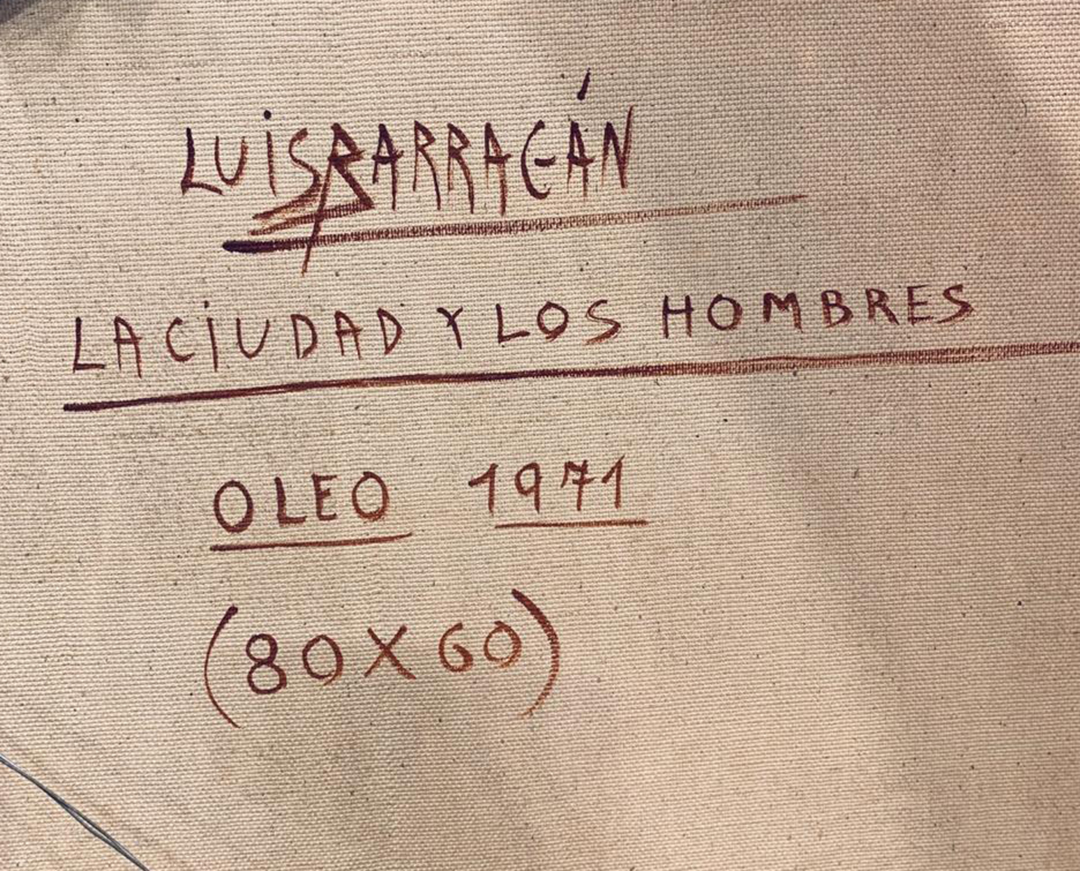 LUiS BARRAGÁN
LA CiUDAD Y LOS HOMBRES
OLEO 1971
(80 X 60)